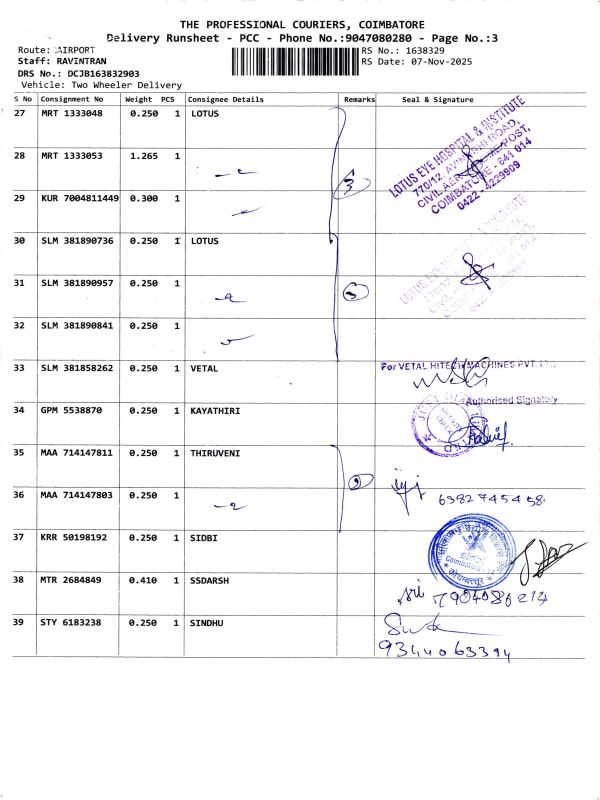 THE PROFESSIONAL COURIERS, COIMBATORE
Delivery Runsheet - PCC - Phone No.:9047080280 - Page No.:3
Route: AIRPORT
RS No.: 1638329
Staff: RAVINTRAN
RS Date: 07-Nov-2025
DRS No.: DCJB163832903
Vehicle: Two Wheeler Delivery
S No Consignment No Weight PCS Consignee Details Remarks Seal & Signature
27 MRT 1333048 0.250 1 LOTUS
LOTUS EYE HOSPITAL & INSTITUTE
770/12, AVINASHI ROAD,
CIVIL AERODROME POST,
COIMBATORE - 641 014
0422 - 4229909
28 MRT 1333053 1.265 1
3
29 KUR 7004811449 0.300 1
30 SLM 381890736 0.250 1 LOTUS
31 SLM 381890957 0.250 1
32 SLM 381890841 0.250 1
33 SLM 381858262 0.250 1 VETAL
For VETAL HITECH MACHINES PVT. LTD.
Authorised Signatory
34 GPM 5538870 0.250 1 KAYATHIRI
35 MAA 714147811 0.250 1 THIRUVENI
6382745458
36 MAA 714147803 0.250 1
37 KRR 50198192 0.250 1 SIDBI
38 MTR 2684849 0.410 1 SSDARSH
Sri 7904086214
39 STY 6183238 0.250 1 SINDHU
9344063394